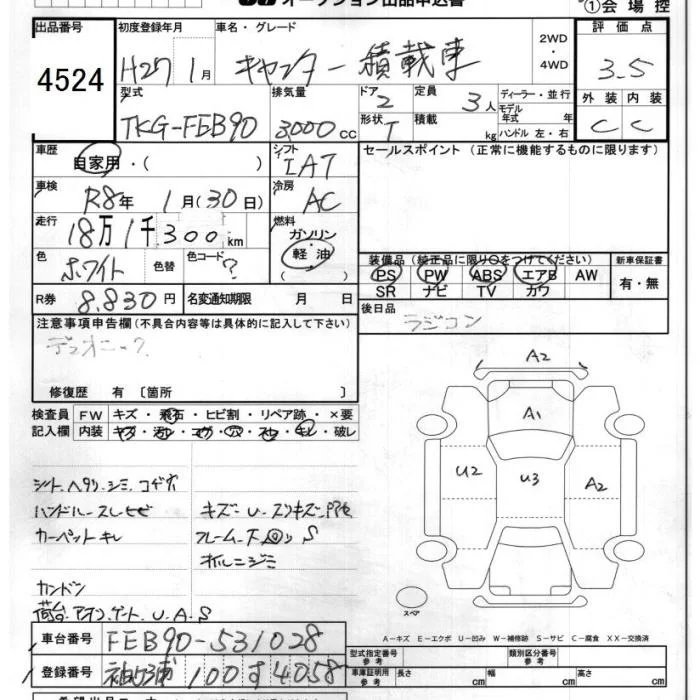 オークション出品申込書
①会場控
出品番号
4524
初度登録年月
H27 1月
車名・グレード
キャンター積載車
2WD・4WD
評価点
3.5
型式
TKG-FEB90
排気量
3000cc
ドア
2
定員
3人
ディーラー・並行
モデル年式 年式
形状
T
積載
kg
ハンドル 左・右
外装 内装
C C
車歴
自家用・( )
シフト
IAT
セールスポイント(正常に機能するものに限ります)
車検
R8年 1月(30日)
冷房
AC
走行
18万1千300km
燃料
ガソリン
軽油
( )
色
ホワイト
色替
色コード
?
装備品(純正品に限り○をつけてください)
PS PW ABS エアB AW
SR ナビ TV カワ
新車保証書
有・無
R券
8.830円
名変通知期限 月 日
後日品
ラジコン
注意事項申告欄(不具合内容等は具体的に記入して下さい)
修復歴 有〔箇所 〕
検査員記入欄
FW キズ・飛石・ヒビ割・リペア跡・×要
内装 キズ・汚レ・コゲ・穴・スレ・キレ・破レ
シート ヘタリ、シミ、コゲ穴
ハンドルースレヒビ
カーペットキレ
キズー U
S
カンドン
荷台、アオリ、ゲート、U、A、S
A2
A1
U2
U3
A2
スペア
A-キズ E-エクボ U-凹み W-補修跡 S-サビ C-腐食 XX-交換済
車台番号
FEB90-531028
登録番号
袖ヶ浦 100す4058
型式指定番号 参考
類別区分番号 参考
車庫証明用 参考
長さ cm
幅 cm
高さ cm